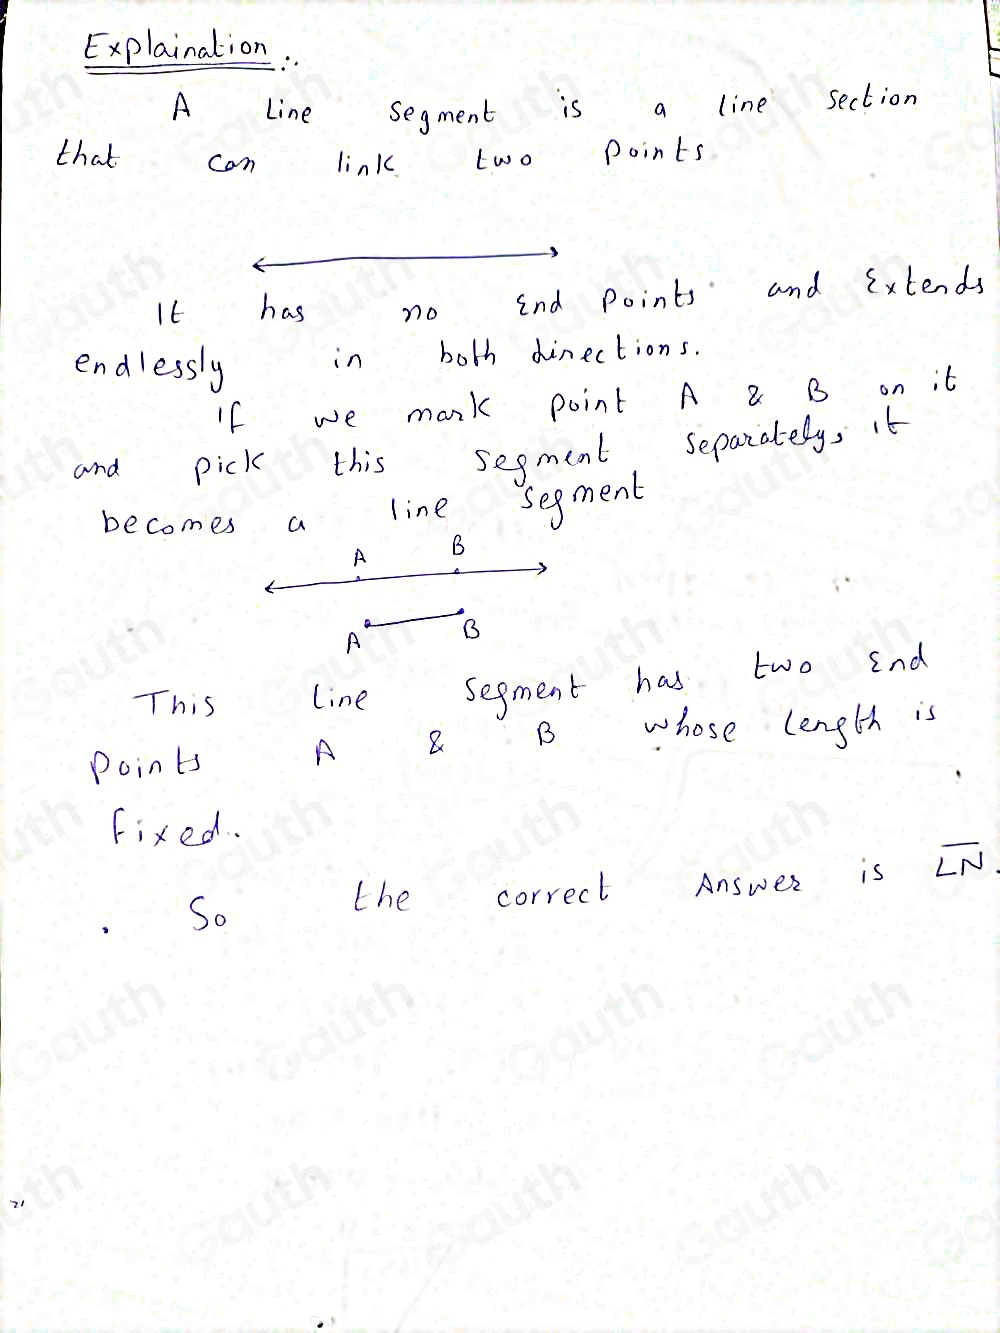 Explaination :.
A Line segment is a line section
that can link two points.
It has no End Points and Extends
endlessly in both directions.
If we mark point A & B on it
and pick this segment separately, it
becomes a line segment
A B
A B
This line segment has two End
points A & B whose length is
fixed.
So the correct Answer is L̅N̅.